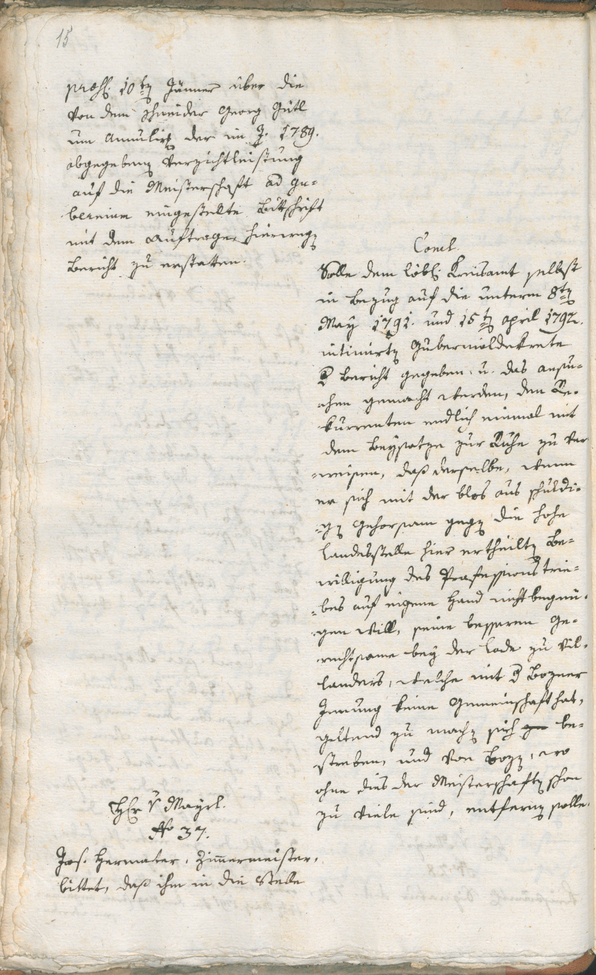 15
präs. 10ten Jänner über die
von dem Schneider Georg Gütl
um Annulirg der im J. 1789.
abgegebenen Verzichtleistung
auf die Meisterschaft ad Gu-
bernium eingestellte Bittschrift
mit dem Auftrage hierwegen
Bericht zu erstatten.
Concl.
Solle dem löbl. Kreisamt selbst
in Bezug auf die unterm 8ten
May 1791. und 15ten April 1792.
intimirten Gubernialdekrete
der Bericht gegeben, u. das Ansu-
chen gemacht werden, den Re-
kurrenten endlich einmal mit
dem Beysatze zur Ruhe zu ver-
weisen, daß derselbe, wenn
er sich mit der blos aus schuldi-
gen Gehorsam gegen die hohe
Landesstelle hier ertheilten Be-
willigung des Professionstrie-
bes auf eigene Hand nicht begnü-
gen will, seine besseren Ge-
rechtsame bey der Lade zu Vil-
landers, welche mit der Bozner
Innung keine Gemeinschaft hat,
geltend zu machen sich be-
streben, und von Bozen, wo
ohne dies der Meisterschaften schon
zu viele sind, entfernen solle.
Hr v Mayrl.
No 37.
Jos. Hermater, Zimmermeister,
bittet, daß ihm in die Stelle